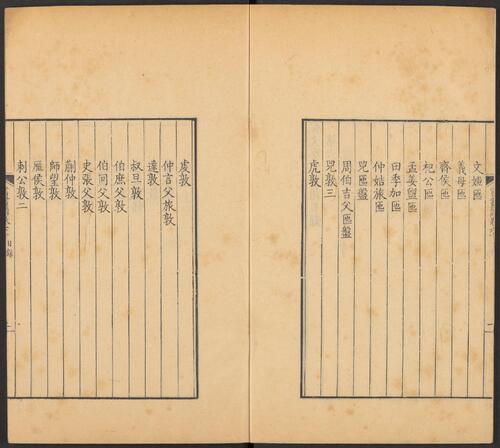 文姬匜
義母匜
齊侯匜
杞公匜
孟姜盥匜
田季加匜
仲姞旅匜
兕匜盤
周伯吉父匜盤
兕敦三
虎敦
虔敦
仲言父旅敦
達敦
叔旦敦
伯庶父敦
伯冏父敦
史張父敦
蒯仲敦
師望敦
雁侯敦
剌公敦二
目錄
二